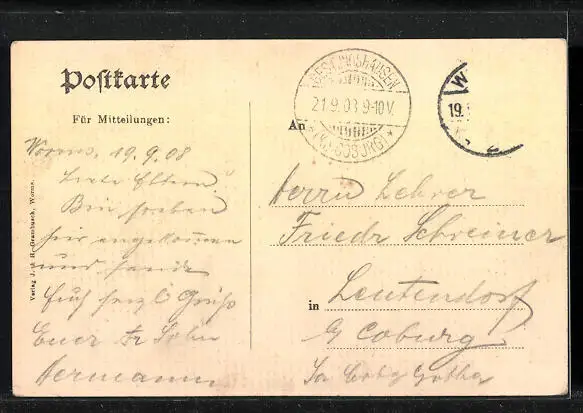 Postkarte
Für Mitteilungen:
Worms, 19.9.08
Liebe Eltern!
Bin soeben
hier angekommen
und sende
Euch herzl. Grüße
Euer Sohn
Hermann
Verlag J. H. Worms.
21.9.08 9-10V.
(HZGT. COBURG)
W
19.
An
Herrn Lehrer
Friedr Schreiner
in Leutendorf
b/ Coburg
Sa Cobg Gotha